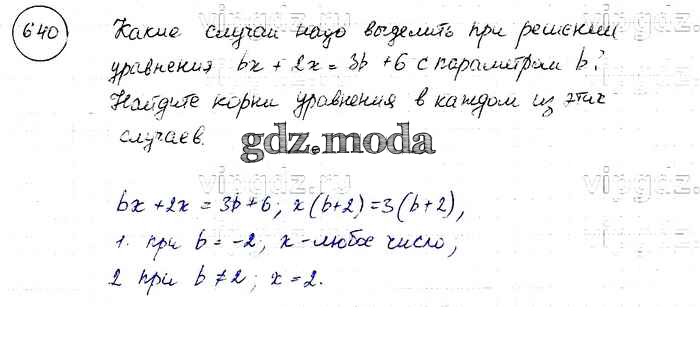 640 Какие случаи надо выделить при решении
уравнения bx + 2x = 3b + 6 с параметром b?
Найдите корни уравнения в каждом из этих
случаев.
gdz.moda
bx + 2x = 3b + 6; x(b+2) = 3(b+2),
1. при b = -2; x - любое число;
2 при b ≠ 2; x = 2.
vipgdz.ru
vipgdz.ru
vipgdz.ru
vipgdz.ru
vipgdz.ru
vipgdz.ru